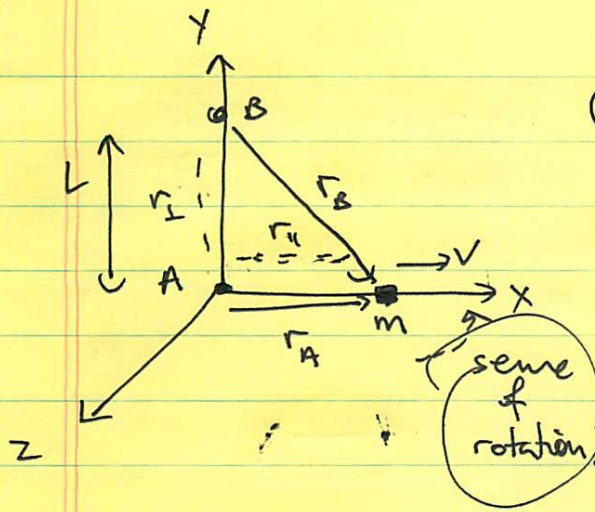 Y
B
L
r⊥
r_B
r_∥
V
A
X
r_A
m
sense
of
rotation
Z